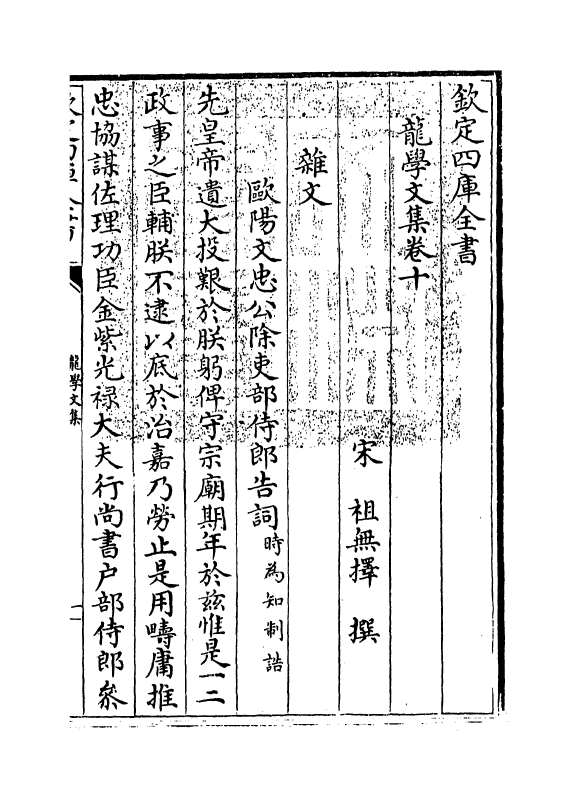 欽定四庫全書
龍學文集卷十
宋 祖無擇 撰
雜文
歐陽文忠公除吏部侍郎告詞時為知制誥
先皇帝遺大投艱於朕躬俾守宗廟期年於兹惟是一二
政事之臣輔朕不逮以底於冶嘉乃勞止是用疇庸推
忠協謀佐理功臣金紫光禄大夫行尚書户部侍郎叅
龍學文集
一